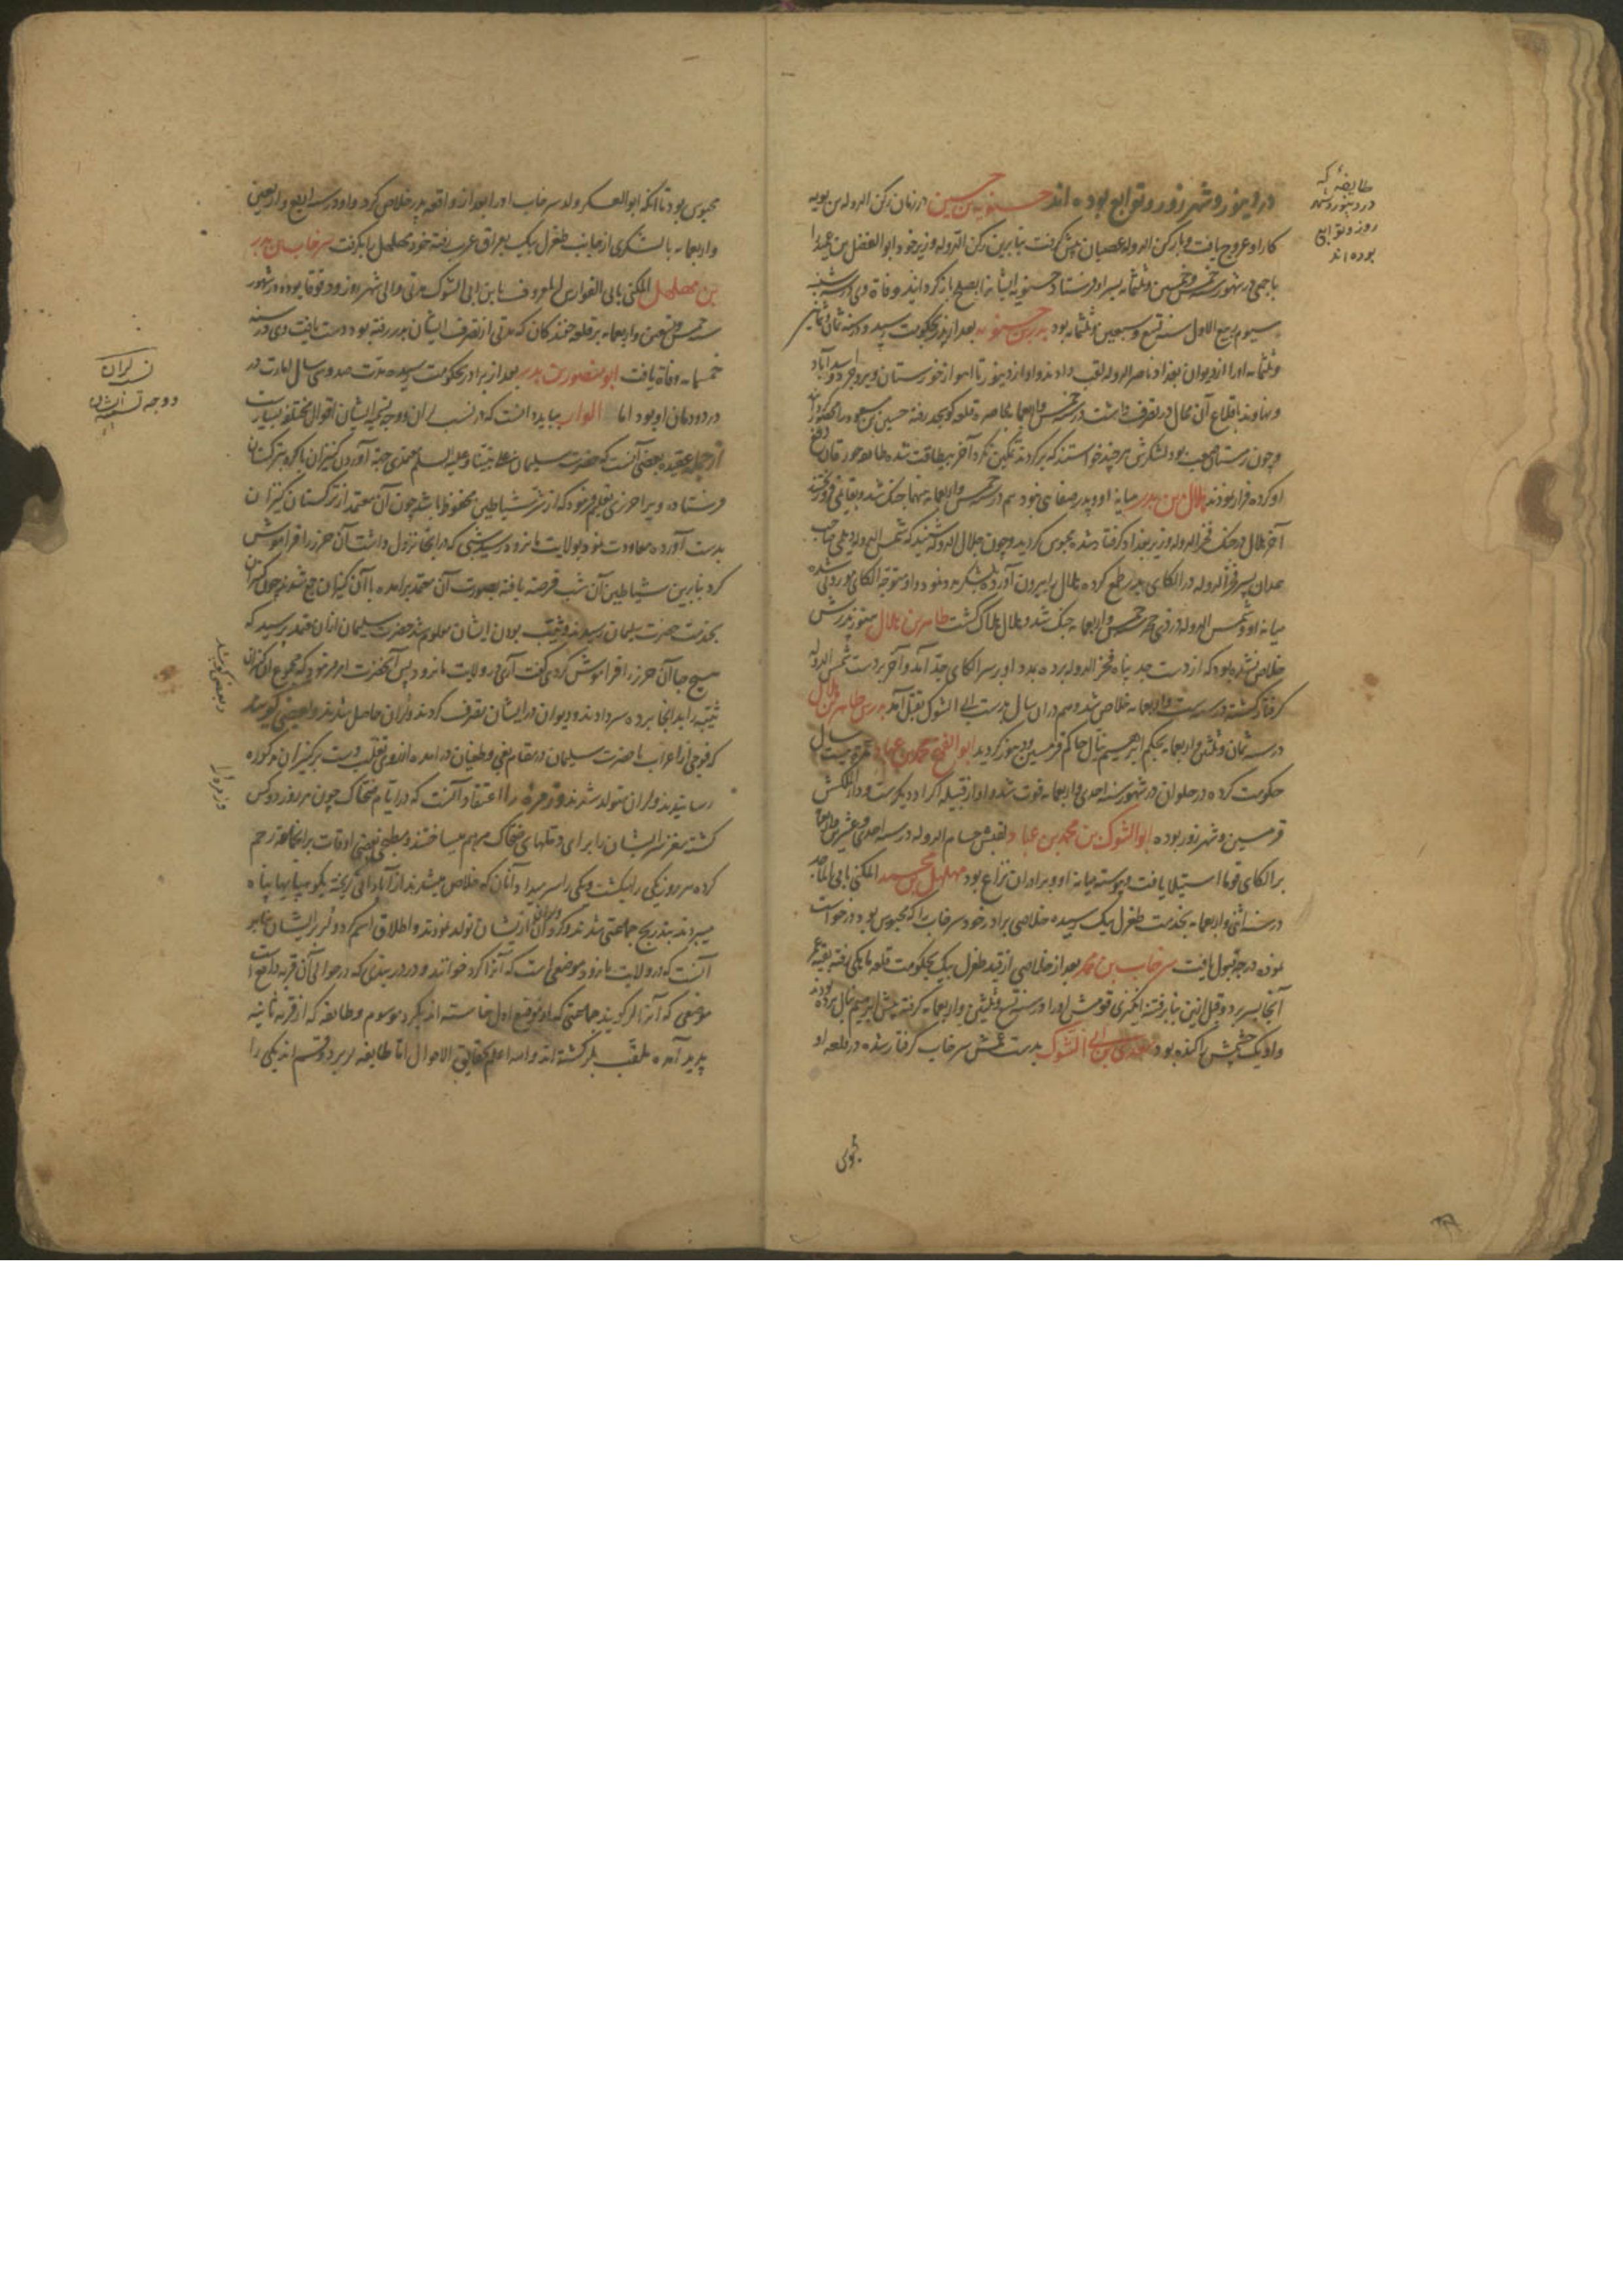 طایفهٔ که
در دینور و شهر
زور و توابع
بوده اند
در دینور و شهر زور و توابع بوده اند حسنویه بن حسین در زمان رکن الدوله بن بویه
کار او عروج یافت و با رکن الدوله عصیان پیش گرفت بنابرین رکن الدوله وزیر خود ابو الفضل بن عمید را
با جمعی در شهور سنه خمس و خمسین و ثلثمائه بسر او فرستاد حسنویه ایشانرا بصلح باز گردانید وفاة وی در شنبه
سیوم ربیع الاول سنه تسع و سبعین و ثلثمائه بود بدر بن حسنویه بعد از پدر بحکومت رسید و در سنه ثمان و ثمانین
و ثلثمائه او را از دیوان بغداد ناصر الدوله لقب دادند و او از دینور تا اهواز خوزستان و بروجرد و اسدآباد
و نهاوند با قلاع آن محال در تصرف داشت در سنه خمس و اربعمائه بمحاصره قلعه کوسجد رفته حسین بن مسعود را محصور گردانید
و چون زمستان صعب بود لشکرش هر چند خواستند که برگردند تمکین نکرد آخر بیطاقت شده طایفه جورقان دفع
او کرده فرار نمودند هلال بن بدر میانه او و پدر صفایی نبود هم در سنه خمس و اربعمائه
آخر هلال در جنک فخر الدوله وزیر بغداد گرفتار شده محبوس گردید و چون جلال الدوله شنید که شمس الدوله دیلمی صاحب
همدان پسر فخر الدوله در الکای بدر طمع کرده هلال را بیرون آورده لشکر همراه نمود و او متوجه الکای موروثی شده
میانه او و شمس الدوله در ذی حجه خمس و اربعمائه جنک شد و هلال هلاک گشت طاهر بن هلال هنوز پدرش
خلاص نشده بود که از دست جد پناه بفخر الدوله برده بود او بر سر الکای جد آمد و آخر بر دست شمس الدوله
گرفتار گشته در سنه ست و اربعمائه خلاص شد و هم در ان سال بدست ابی الشوک بقتل آمد بدر بن طاهر بن هلال
در سنه ثمان و ثلثین و اربعمائه بحکم ابرهیم ینال حاکم قرمیسین و دینور گردید ابو الفتح محمد بن عیار مدت بیست سال
حکومت کرده در حلوان در شهور سنه احدی و اربعمائه فوت شد و او از قبیله اکراد دیگرست و دار الملکش
قرمیسین و شهر زور بوده ابو الشوک بن محمد بن عیار لقبش حسام الدوله در سنه احدی و عشرین و اربعمائه
بر الکای قوقا استیلا یافت و پیوسته میانه او و برادران نزاع بود مهلهل بن محمد المکنی بابی الماجد
در سنه اثنی و اربعمائه بخدمت طغرل بیک رسیده خلاصی برادر خود سرخاب را که محبوس بود درخواست
نموده درجه قبول یافت سرخاب بن محمد بعد از خلاصی از قید طغرل بیک بحکومت قلعه ماهکی رفته بقیه عمر
آنجا بسر برد و قبل ازین بنابر فتنه انگیزی قومش او را در سنه تسع و ثلثین و اربعمائه گرفته پیش ابرهیم ینال برده بودند
و او یک چشمش را کنده بود سعدی بن ابی الشوک بدست عمش سرخاب گرفتار شده در قلعه او
محبوس بود تا آنکه ابو العسکر ولد سرخاب او را بعد از واقعه پدر خلاص کرد و او در سنه اربع و اربعین
و اربعمائه با لشکری از جانب طغرل بیک بعراق عرب رفته خود مهلهل را بگرفت سرخاب بن بدر
بن مهلهل المکنی بابی الفوارس المعروف بابن ابی الشوک مدتی والی شهر زور و دقوقا بوده در شهور
سنه خمس و تسعین و اربعمائه بر قلعه خفتدکان که مدتی از تصرف ایشان بدر رفته بود دست یافت وی در سنه
خمسمائه وفاة یافت ابو منصور بن بدر بعد از برادر بحکومت رسیده مدت صد و سی سال امارت در
دودمان او بود اما الوار بباید دانست که در نسب لران و وجه تسمیه ایشان اقوال مختلفه بسیارست
از جمله عقیده بعضی آنست که حضرت سلیمان علی نبینا و علیه السلم معتمدی جهة آوردن کنیزان باکره بترکستان
فرستاد و ویرا حرزی تعلیم فرمود که از شر شیاطین محفوظ باشد چون آن معتمد از ترکستان کنیزان
بدست آورده معاودت نمود بولایت مانرود رسید شبی که در آنجا نزول داشت آن حرز را فراموش
کرد بنابرین شیاطین آن شب فرصت یافته بصورت آن معتمد برآمده با آن کنیزان جمع شدند چون کنیزان
بخدمت حضرت سلیمان رسیدند و ثیب بودن ایشان معلوم شد حضرت سلیمان از آن معتمد پرسید که
هیچ جا آن حرز را فراموش کردی گفت آری در ولایت مانرود پس آنحضرت امر فرمود که مجموع آن کنیزان
ثیبه را بدانجا برده سر دادند و دیوان در ایشان تصرف کردند و لران حاصل شدند و بعضی گویند
که فوجی از اعراب با حضرت سلیمان در مقام بغی و طغیان درآمده از روی تغلب دست بر کنیزان مذکوره
رسانیدند و لران متولد شدند و زمره را اعتقاد آنست که در ایام ضحاک چون هر روز دو کس
کشته مغز سر ایشان را برای دملهای ضحاک مرهم میساختند و مطبخی بعضی اوقات بر آنجماعة رحم
کرده هر روز یکی را میکشت و یکی را سر میداد و آنان که خلاص میشدند از آبادانی گریخته بکوه و بیابانها پناه
میبردند بتدریج جماعتی شدند و کرد و لر از ایشان تولد نمودند و اطلاق اسم کرد و لر بر ایشان بنابر
آنست که در ولایت مانرود موضعی است که آنرا کرد خوانند و در دربندی که در حوالی آن قریه واقع است
موضعی که آنرا لر گویند جماعتی که از موضع اول خاسته اند بکرد موسوم و طایفه که از قریه ثانیه
پدید آمده ملقب بلر گشته اند و الله اعلم بحقایق الاحوال اما طایفه لر بر دو قسم اند یکی را
نسب لران
و وجه تسمیه ایشان
و بعضی گویند
و زمره را